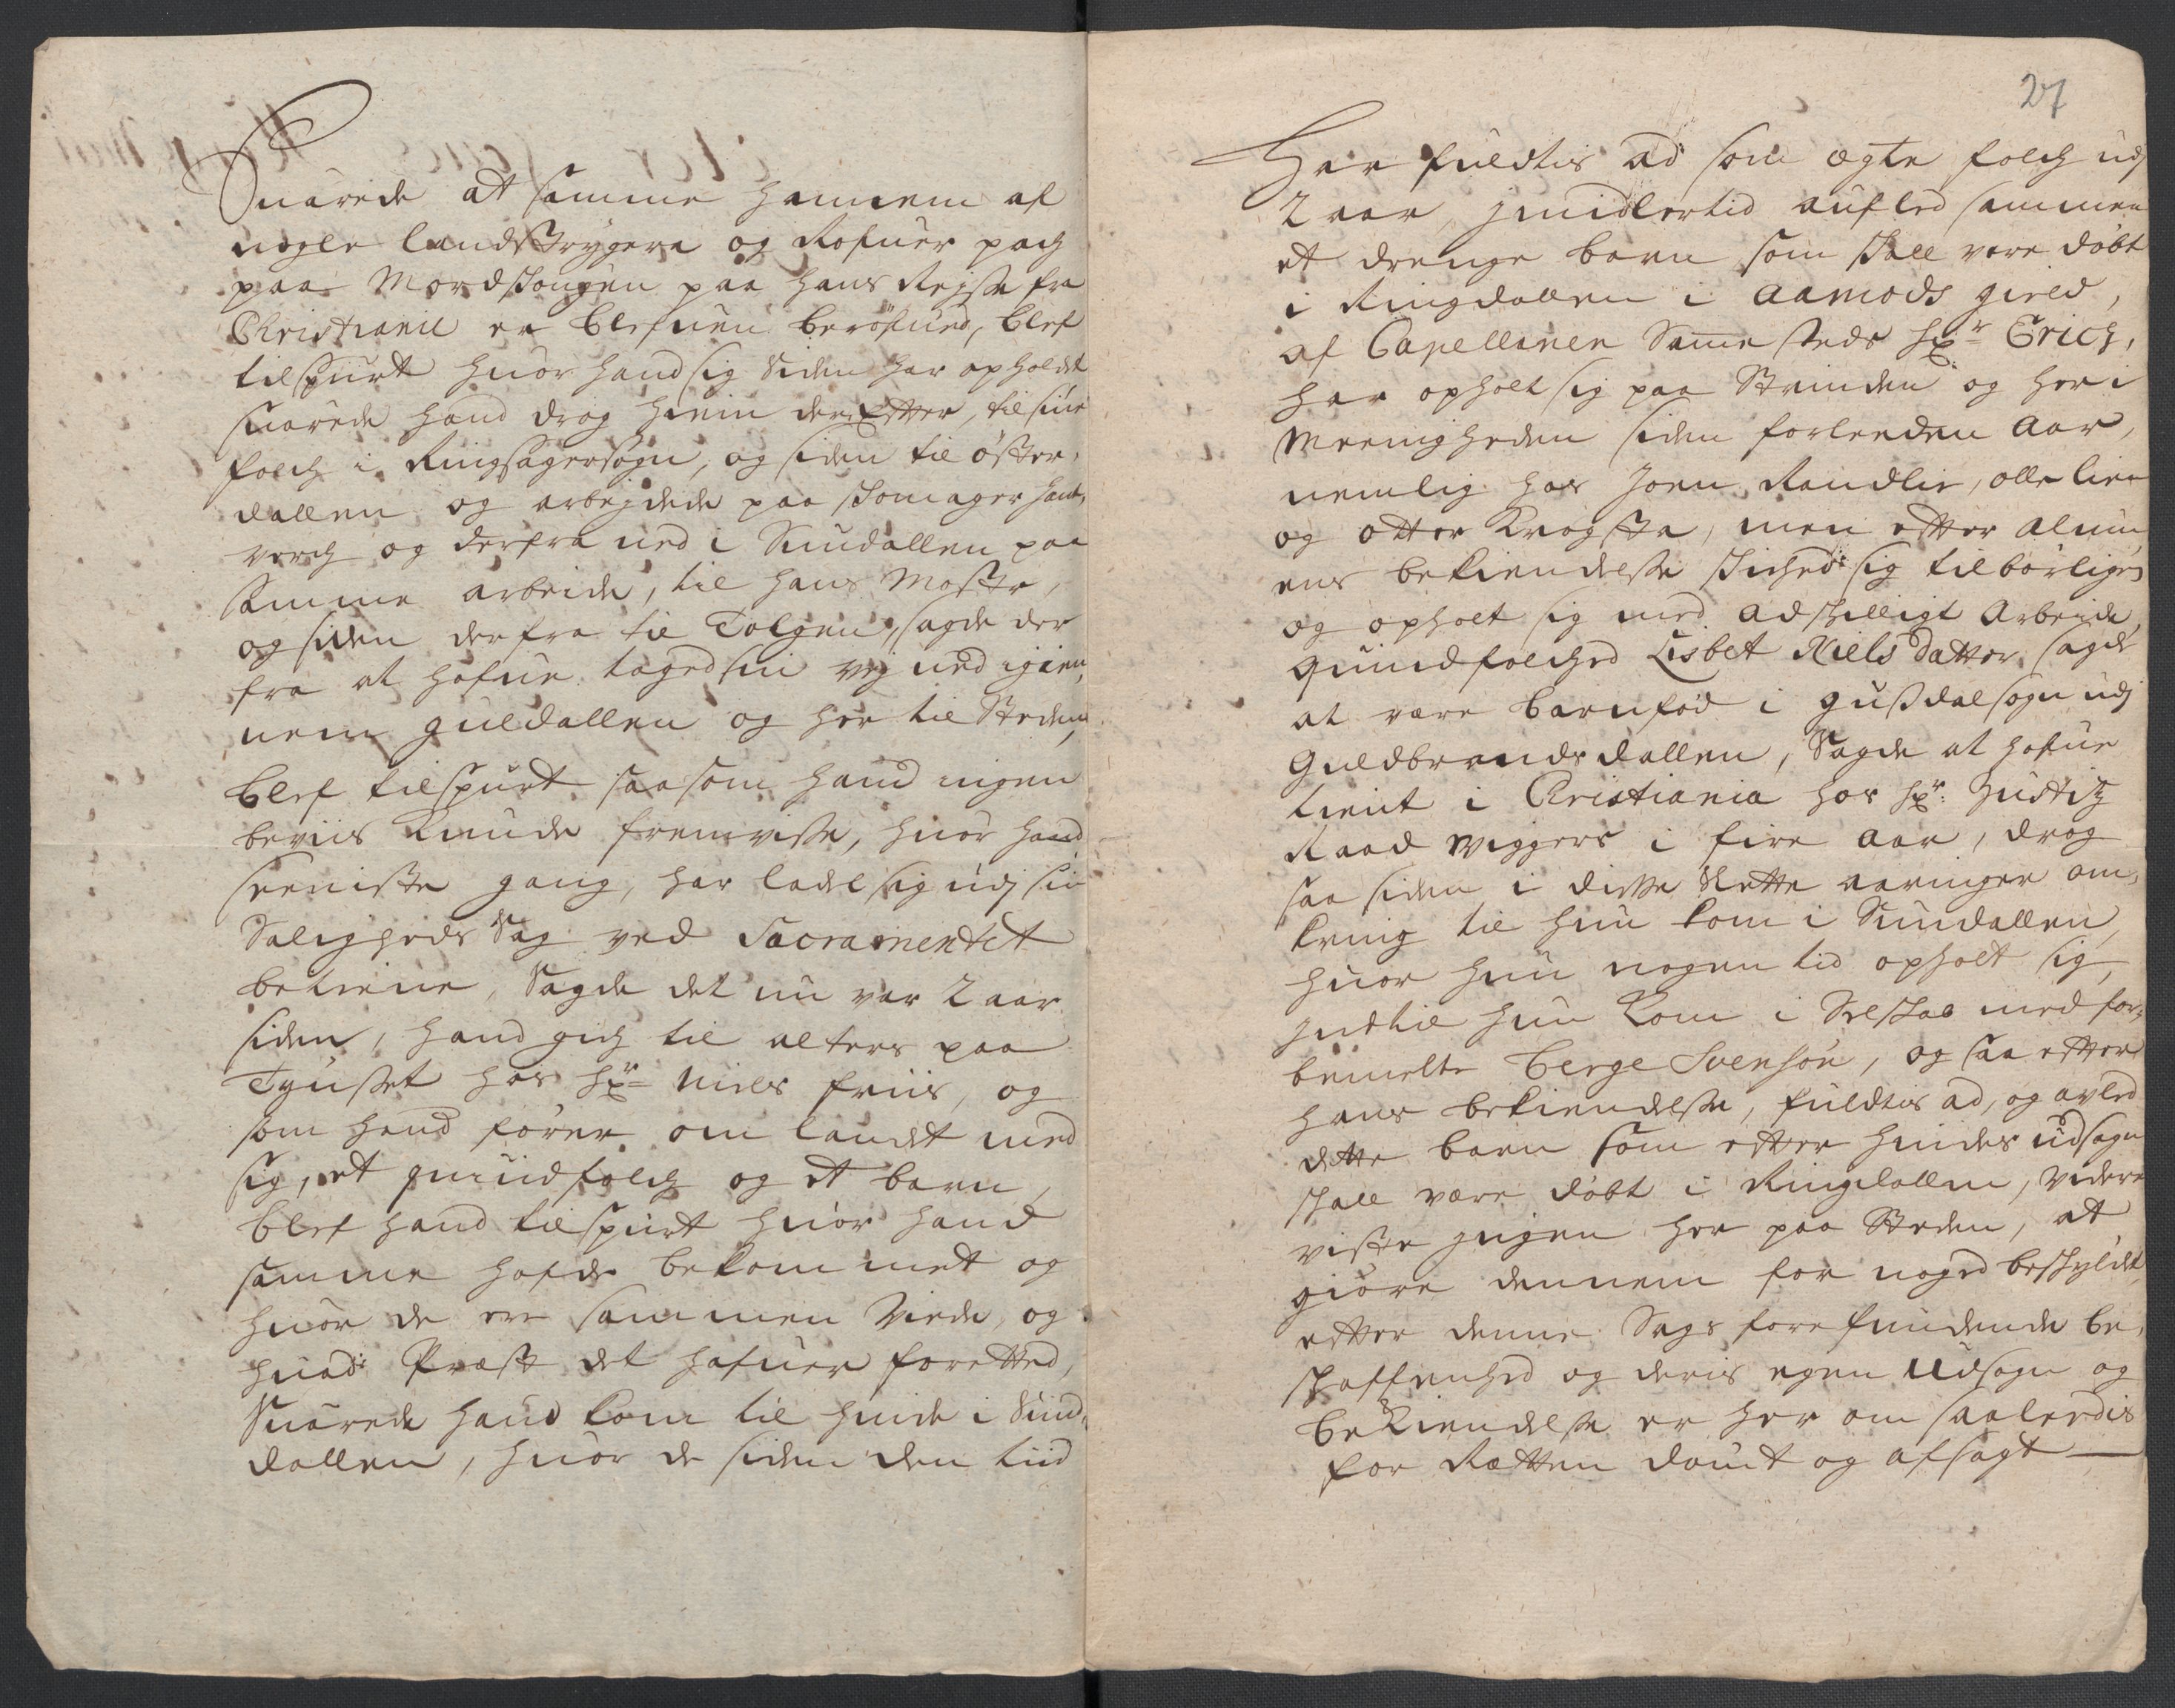 Suarede at samme hannem af
nogle landstrygere og Rofuer pach
paa Mordskougen paa hans Reysse fra
Christianie er blefuen berøfued, blef
tilspurt huor hand sig siden har opholdet
suarede hand drog hiem derefter, til sine
folch i Ringsagersogn, og siden til øster,
dallen og arbejdede paa skomager hand,
verch og derfra ned i Sundallen paa
samme arbeide, til hans Moster,
og siden derfra til Tolgen, sagde der
fra at hafue taged sin vej ned igien,
nem Guldallen og her til Steden,
blef tilspurt saasom hand ingen
beviis kunde fremvisse, huor hand
seeniste gang, har ladet sig udj sin
Saligheds Sag ved Sacramentet
betiene, Sagde det nu var 2 aar
siden, hand gich til alters paa
Tønset hos Hr: Niels friis, og
som hand fører om landet med
sig, et quindfolch og et barn,
blef hand tilspurt huor hand
samme hafde bekommet og
huor de ere sammen Viede, og
huad Præst det hafuer forretted,
Suarede hand kom til hende i Sund,
dallen, huor de siden den tiid
27
Har fuldtis ad som ægte folch udj
2 aar, jmidlertid aufled sammen
et drenge barn som skall vere døbt
i Ringdallen i Aamods gield,
af Capellanen Samme steds Hr: Erich,
har opholt sig paa Strinden og her i
Meenigheden siden forleeden Aar,
nemlig hos Joen Randlie, olle lien
og otter Krogsta, men etter Almu,
ens bekiendelsse skiched sig tilbørligen
og opholt sig med adskilligt Arbeide,
quindfolched Lisbet Niels datter, sagde
at være barnfød i Gusdal sogn udj
Guldbrandsdallen, Sagde at hafue
tient i Christiania hos Hr: Justitz
Raad Wiggers i fire aar, drog
saa siden i disse Slette aaringer om,
kring til hun kom i Sundallen,
huor hun nogen tid opholt sig,
jndtil hun kom i Selskab med for,
bemelte Berge Svensøn, og saa etter
hans bekiendelsse, fuldtis ad, og avled
dette barn som etter hindes udsagn
skall være døbt i Ringdallen, videre
viste jngen her paa Steden, at
giøre dennem for noged beskyldt,
etter denne Sags forefundende be,
skaffenhed og deris egen Udsagn og
bekiendelsse er her om saaleedis
for Retten dømt og afsagt —